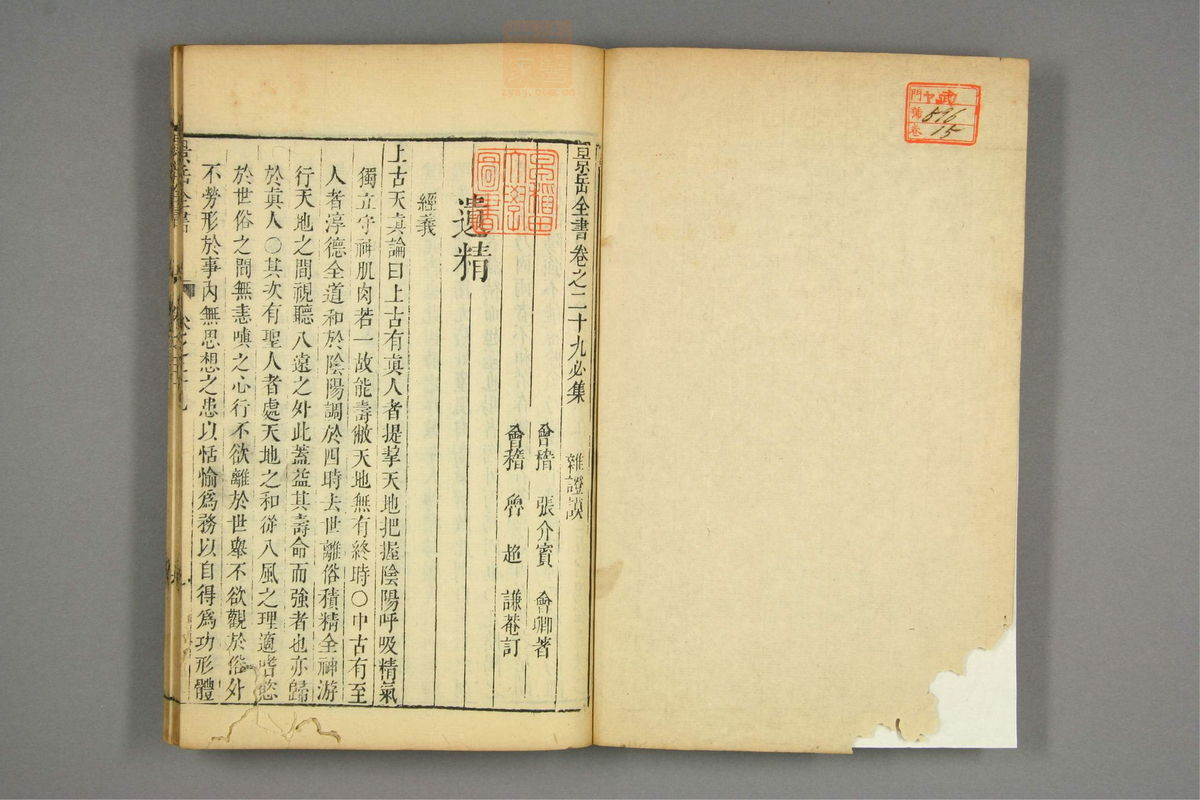 門 ヤ 武
號 596
卷 15
景岳全書卷之二十九必集 雜證謨
會稽 張介賓 會卿著
會稽 魯超 謙菴訂
早稲田大學圖書
遺精
經義
上古天眞論曰上古有眞人者提挈天地把握陰陽呼吸精氣
獨立守神肌肉若一故能壽敝天地無有終時○中古有至
人者淳德全道和於陰陽調於四時去世離俗積精全神游
行天地之間視聽八遠之外此蓋益其壽命而強者也亦歸
於眞人○其次有聖人者處天地之和從八風之理適嗜慾
於世俗之間無恚嗔之心行不欲離於世舉不欲觀於俗外
不勞形於事內無思想之患以恬愉爲務以自得爲功形體
景岳全書